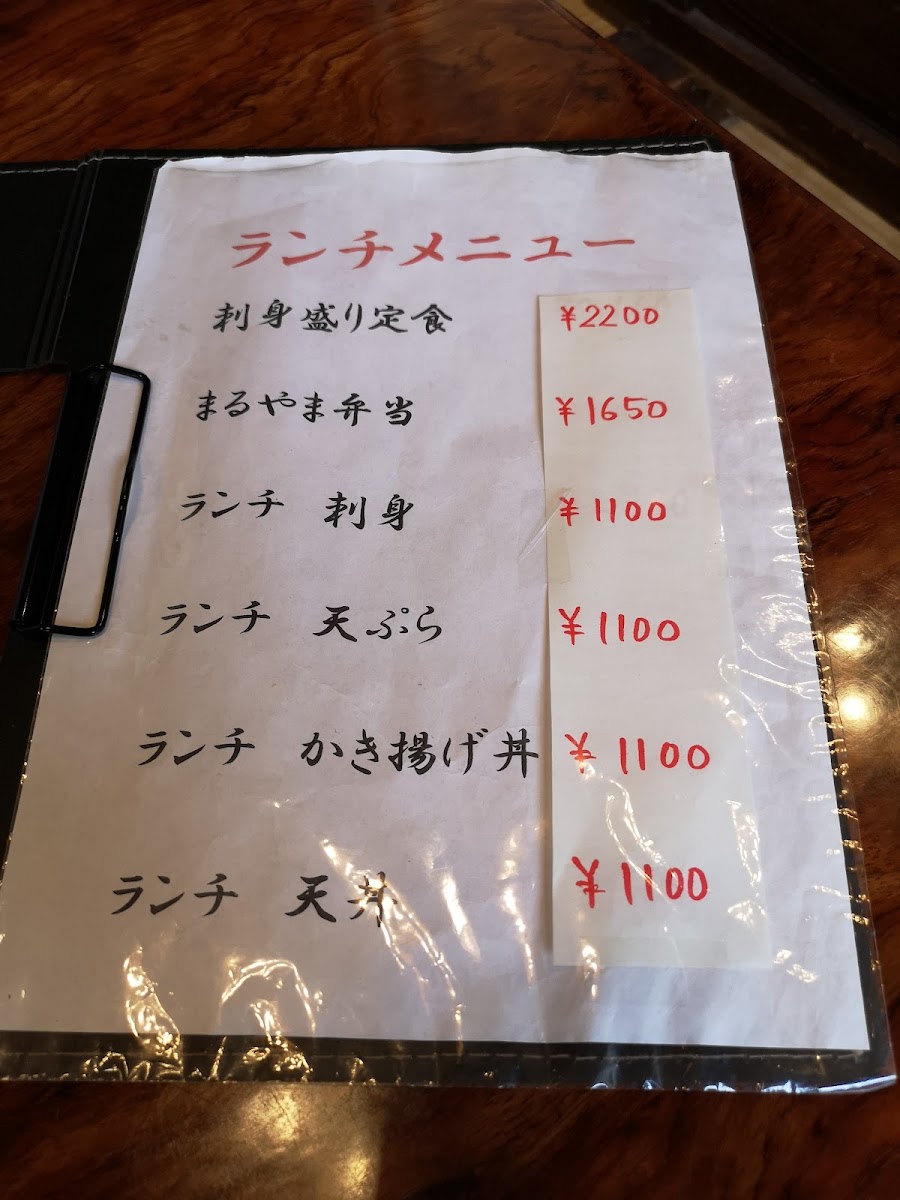 ランチメニュー
刺身盛り定食 ¥2200
まるやま弁当 ¥1650
ランチ 刺身 ¥1100
ランチ 天ぷら ¥1100
ランチ かき揚げ丼 ¥1100
ランチ 天丼 ¥1100